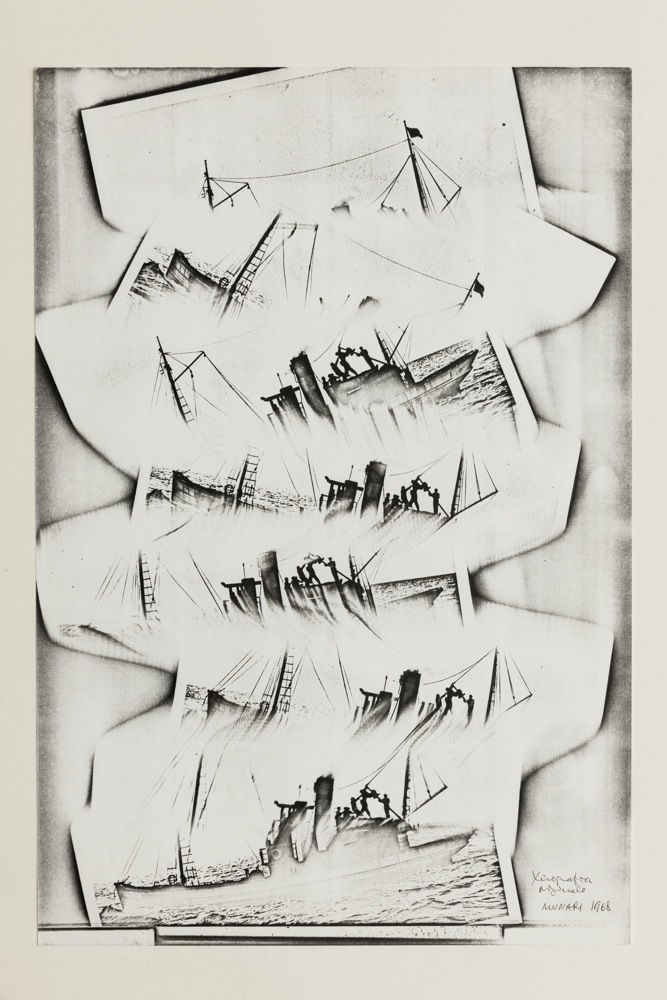 Xerografia
originale
MUNARI 1968